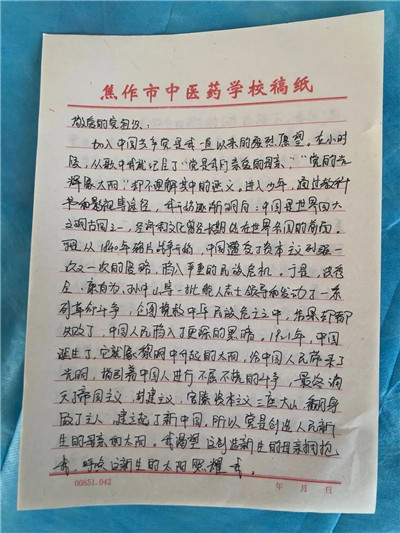 焦作市中医药学校稿纸
敬爱的党组织：
加入中国共产党是我一直以来的强烈愿望。在小时
候，从歌中我就记住了“党是我们亲爱的母亲”，“党的光
辉像太阳”却不理解其中的意义，进入少年，通过教科
书和影视等途径，我开始逐渐明白：中国是世界四大
文明古国之一，经济和文化曾经长期处在世界各国的前面。
但从1840年鸦片战争开始，中国遭受了资本主义列强一
次又一次的侵略，陷入严重的民族危机，于是，洪秀
全、康有为、孙中山等一批能人志士领导和发动了一系
列革命斗争，企图挽救中华民族危亡之中，结果却都
失败了，中国人民陷入了更深的黑暗。1921年，中国
诞生了，它就像黎明中升起的太阳，给中国人民带来了
光明，指引着中国人进行不屈不挠的斗争，最终消
灭了帝国主义，封建主义，官僚资本主义三座大山，翻身
做了主人，建立起了新中国，所以党是创造人民新
生的母亲和太阳。我渴望这创造新生的母亲拥抱
我，呼唤这新生的太阳照耀我。
00851.042 年 月 日